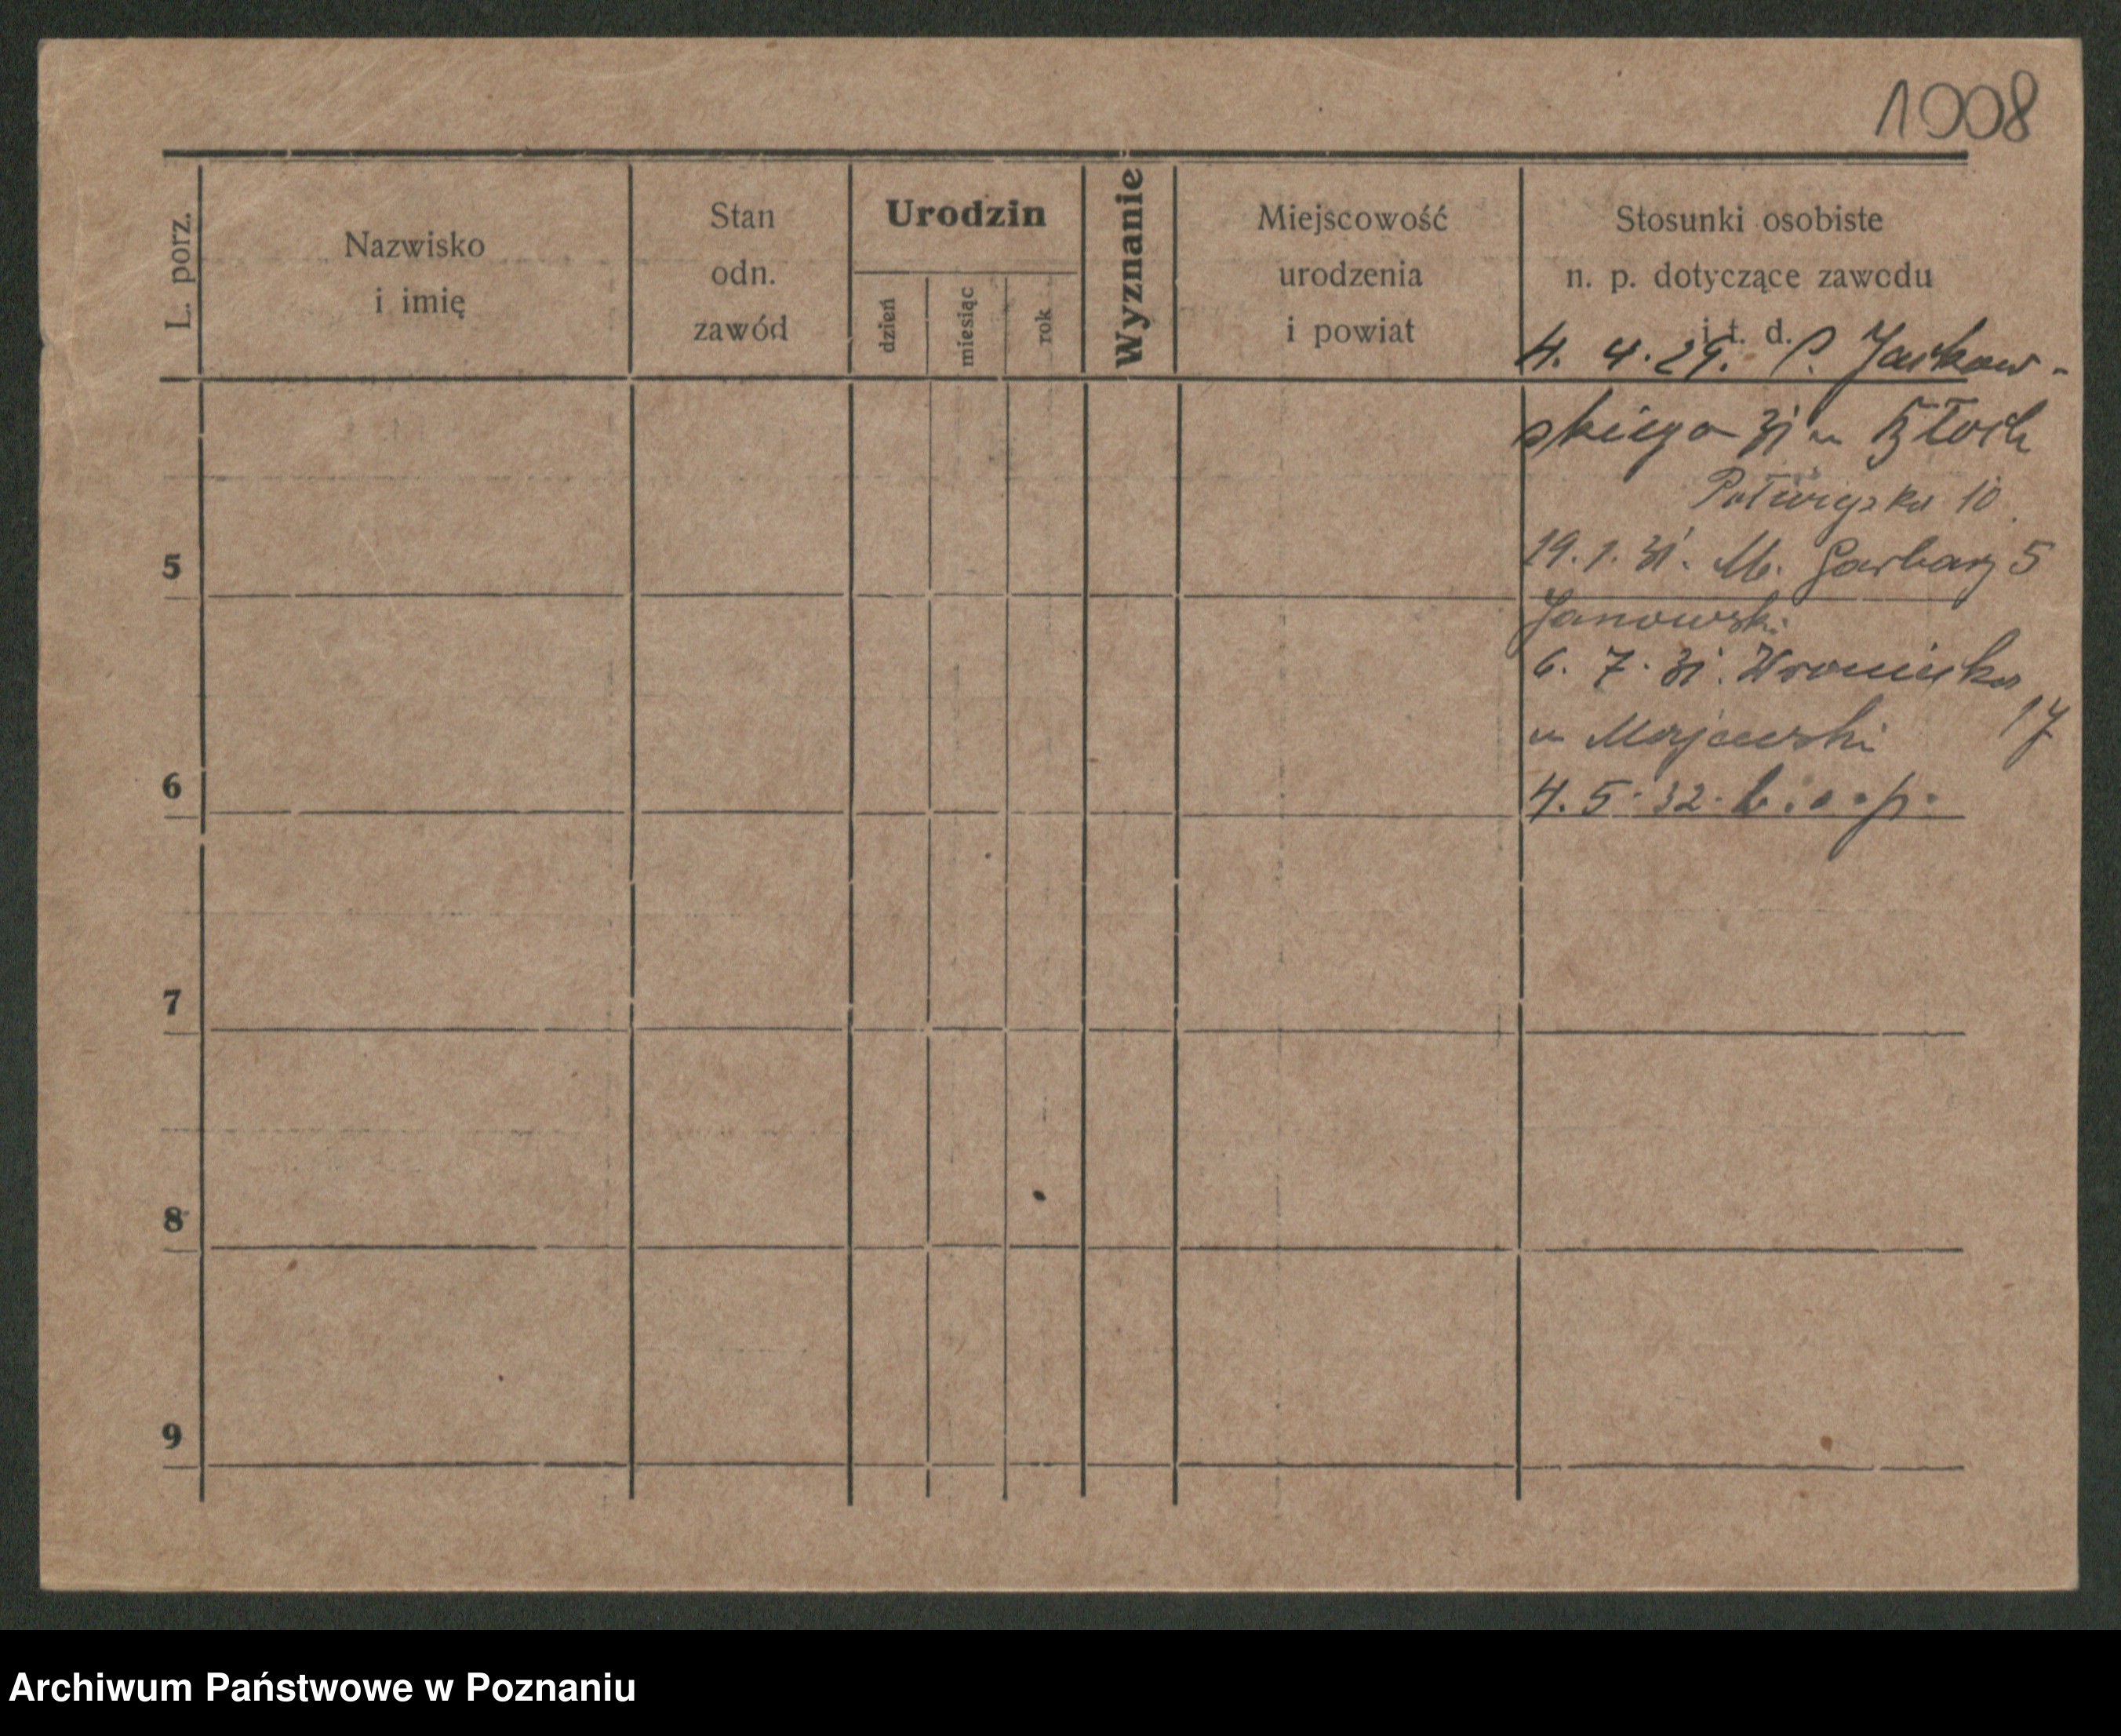 1008
L. porz.
Nazwisko
i imię
Stan
odn.
zawód
Urodzin
dzień
miesiąc
rok
Wyznanie
Miejscowość
urodzenia
i powiat
Stosunki osobiste
n. p. dotyczące zawodu
i t. d.
4. 4. 29. P. Jackow-
skiego 31 u
10
5
19. 1. 31. M. Garbary 5
Janowski
6. 7. 31. Wroniecka
17
u Majewski
6
4. 5. 32. b. o. p.
7
8
9
Archiwum Państwowe w Poznaniu